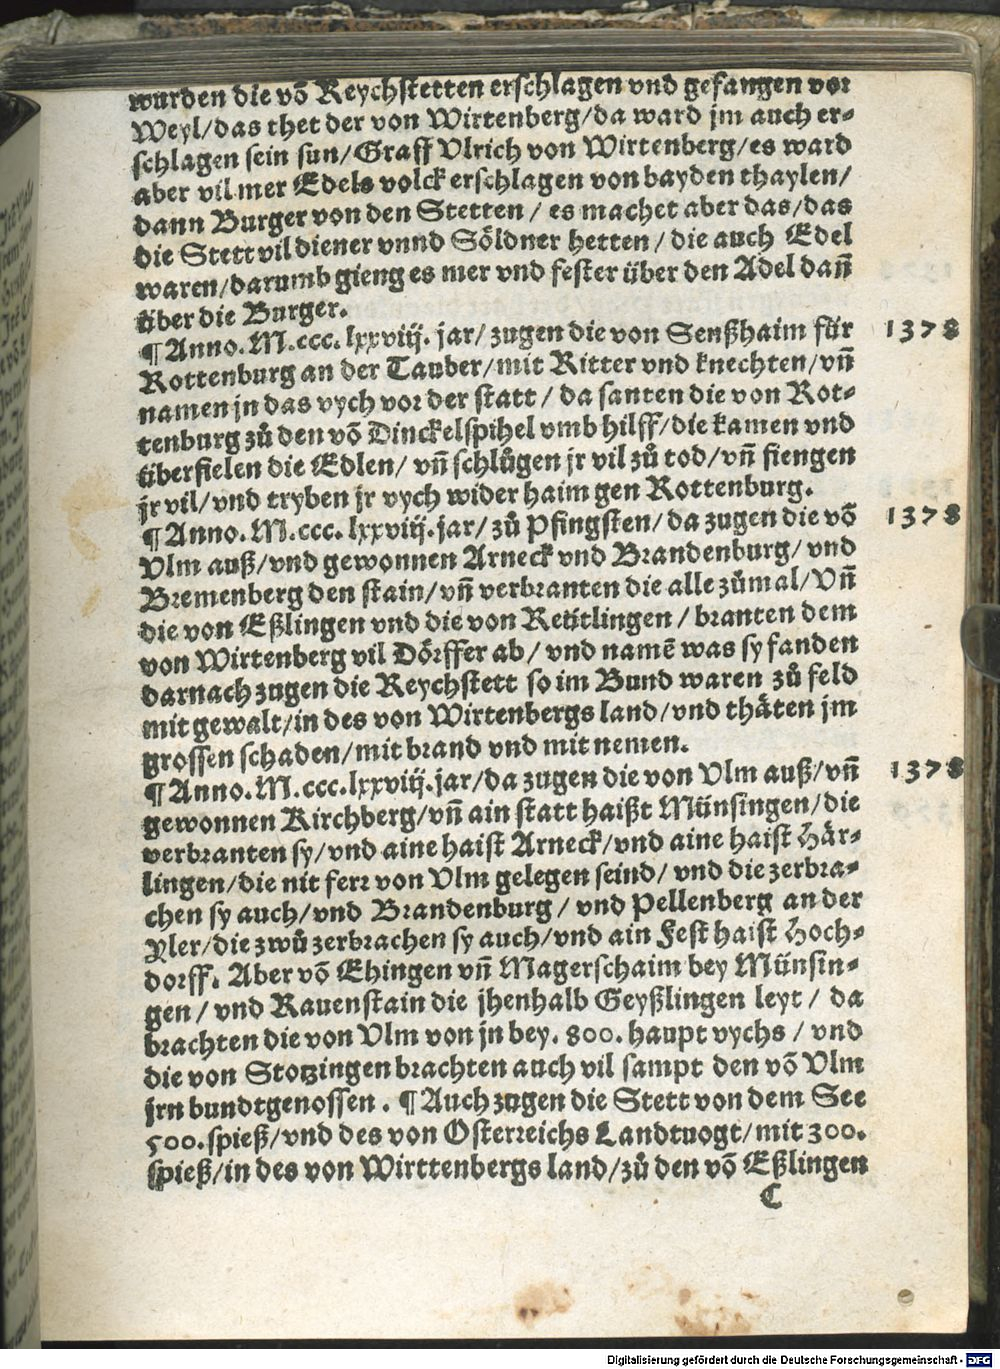 wurden die võ Reychstetten erschlagen vnd gefangen vor
Weyl/das thet der von Wirtenberg/da ward jm auch er-
schlagen sein sun/Graff Vlrich von Wirtenberg/es ward
aber vil mer Edels volck erschlagen von bayden thaylen/
dann Burger von den Stetten / es machet aber das/das
die Stett vil diener vnnd Söldner hetten / die auch Edel
waren/darumb gieng es mer vnd fester über den Adel dañ
über die Burger.
¶ Anno. M. ccc. lxxviij. jar/ zugen die von Senßhaim für 1378
Rottenburg an der Tauber/mit Ritter vnd knechten/vñ
namen jn das vych vor der statt / da santen die von Rot-
tenburg zů den võ Dinckelspihel vmb hilff/die kamen vnd
überfielen die Edlen/ vñ schlůgen jr vil zů tod/vñ fiengen
jr vil/vnd tryben jr vych wider haim gen Rottenburg.
¶ Anno. M. ccc. lxxviij. jar/ zů Pfingsten/da zugen die võ 1378
Vlm auß/vnd gewonnen Arneck vnd Brandenburg/ vnd
Bremenberg den stain/vñ verbranten die alle zůmal/Vñ
die von Eßlingen vnd die von Reütlingen / branten dem
von Wirtenberg vil Dörffer ab/ vnd namẽ was sy fanden
darnach zugen die Reychstett so im Bund waren zů feld
mit gewalt/in des von Wirtenbergs land/vnd thäten jm
grossen schaden/mit brand vnd mit nemen.
¶ Anno. M. ccc. lxxviij. jar/da zugen die von Vlm auß/vñ 1378
gewonnen Kirchberg/vñ ain statt haißt Münsingen/die
verbranten sy/vnd aine haist Arneck/vnd aine haist Här-
lingen/die nit ferr von Vlm gelegen seind/ vnd die zerbra-
chen sy auch/vnd Brandenburg / vnd Pellenberg an der
Yler/die zwů zerbrachen sy auch/vnd ain Fest haist Hoch-
dorff. Aber võ Ehingen vñ Magerschaim bey Münsin-
gen / vnd Rauenstain die jhenhalb Geyßlingen leyt / da
brachten die von Vlm von jn bey. 800. haupt vychs / vnd
die von Stotzingen brachten auch vil sampt den võ Vlm
jrn bundtgenossen . ¶ Auch zugen die Stett von dem See
500. spieß/vnd des von Osterreichs Landtuogt/mit 300.
spieß/in des von Wirttenbergs land/zů den võ Eßlingen
C
Digitalisierung gefördert durch die Deutsche Forschungsgemeinschaft - DFG